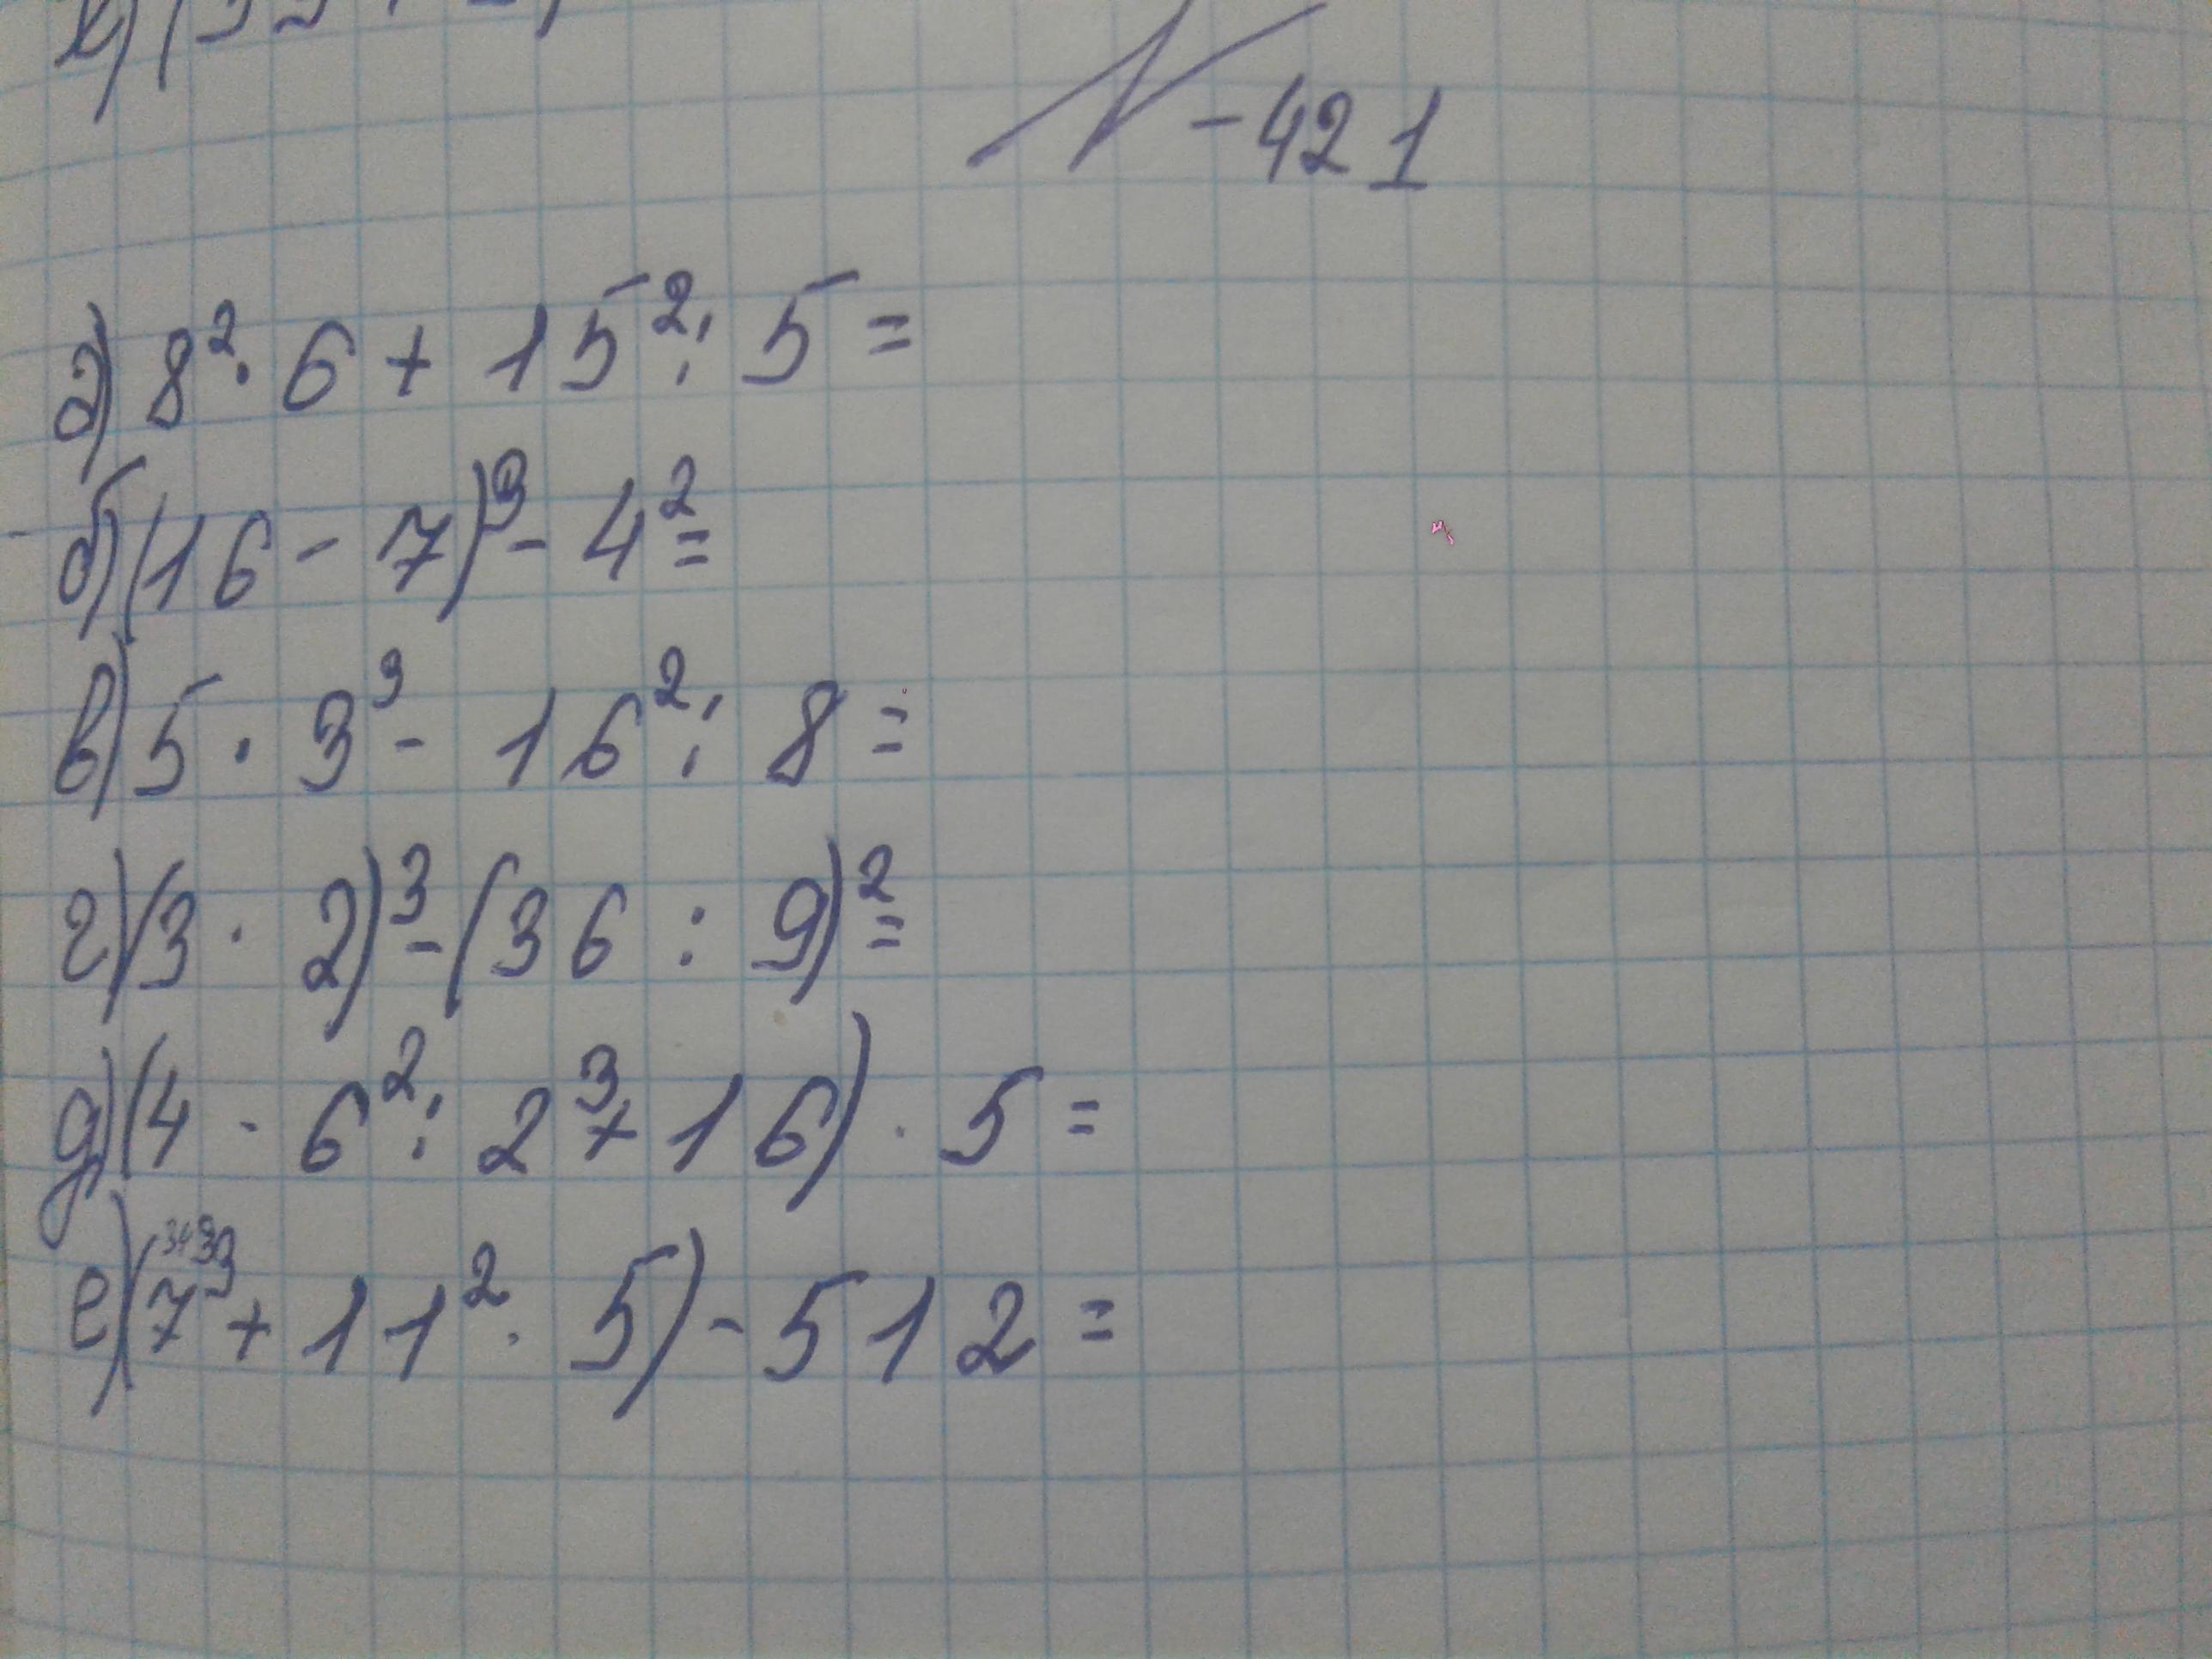 N-421
а) 8²·6+15²:5=
б) (16-7)³-4²=
в) 5·3³-16²:8=
г) (3·2)³-(36:9)²=
д) (4·6²:2³+16)·5=
е) (7³+11²·5)-512=